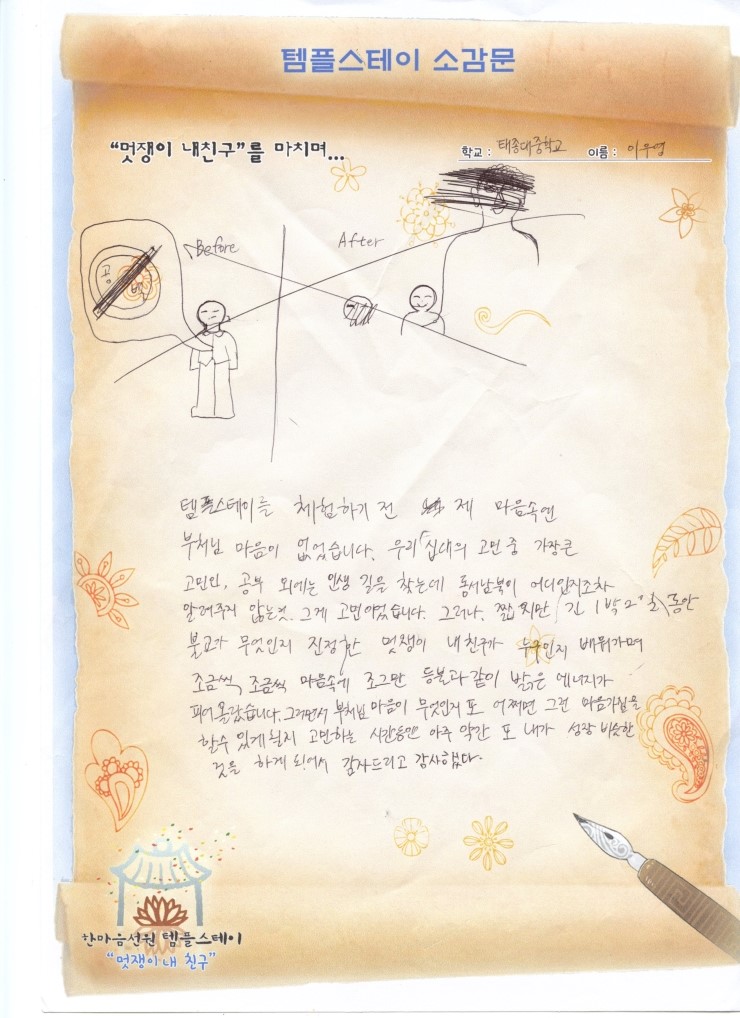 템플스테이 소감문
"멋쟁이 내친구"를 마치며...
학교 : 태종대중학교 이름 : 이우영
Before After
공
템플스테이를 체험하기 전 제 마음속엔
부처님 마음이 없었습니다. 우리 십대의 고민 중 가장큰
고민인, 공부 외에는 인생 길을 찾는데 동서남북이 어디인지조차
알려주지 않는것. 그게 고민이었습니다. 그러나, 짧지만 긴 1박2일 동안
불교가 무엇인지 진정한 멋쟁이 내친구가 누구인지 배워가며
조금씩, 조금씩 마음속에 조그만 등불과 같이 밝은 에너지가
피어올랐습니다. 그러면서 부처님 마음이 무엇인지 또 어쩌면 그런 마음가짐을
할수 있게될지 고민하는 시간동안 아주 약간 또 내가 성장 비슷한
것을 하게 되어서 감사드리고 감사합니다.
한마음선원 템플스테이
"멋쟁이 내 친구"